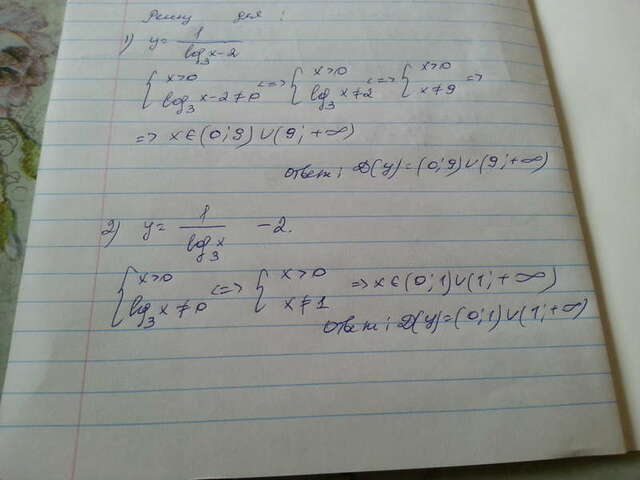 Решу для :
1) y = 1/(log₃x-2)
{x>0; log₃x-2≠0 <=> {x>0; log₃x≠2 <=> {x>0; x≠9 =>
=> x∈(0;9)∪(9;+∞)
Ответ: D(y)=(0;9)∪(9;+∞)
2) y = 1/(log₃x) -2.
{x>0; log₃x≠0 <=> {x>0; x≠1 => x∈(0;1)∪(1;+∞)
Ответ: D(y)=(0;1)∪(1;+∞)